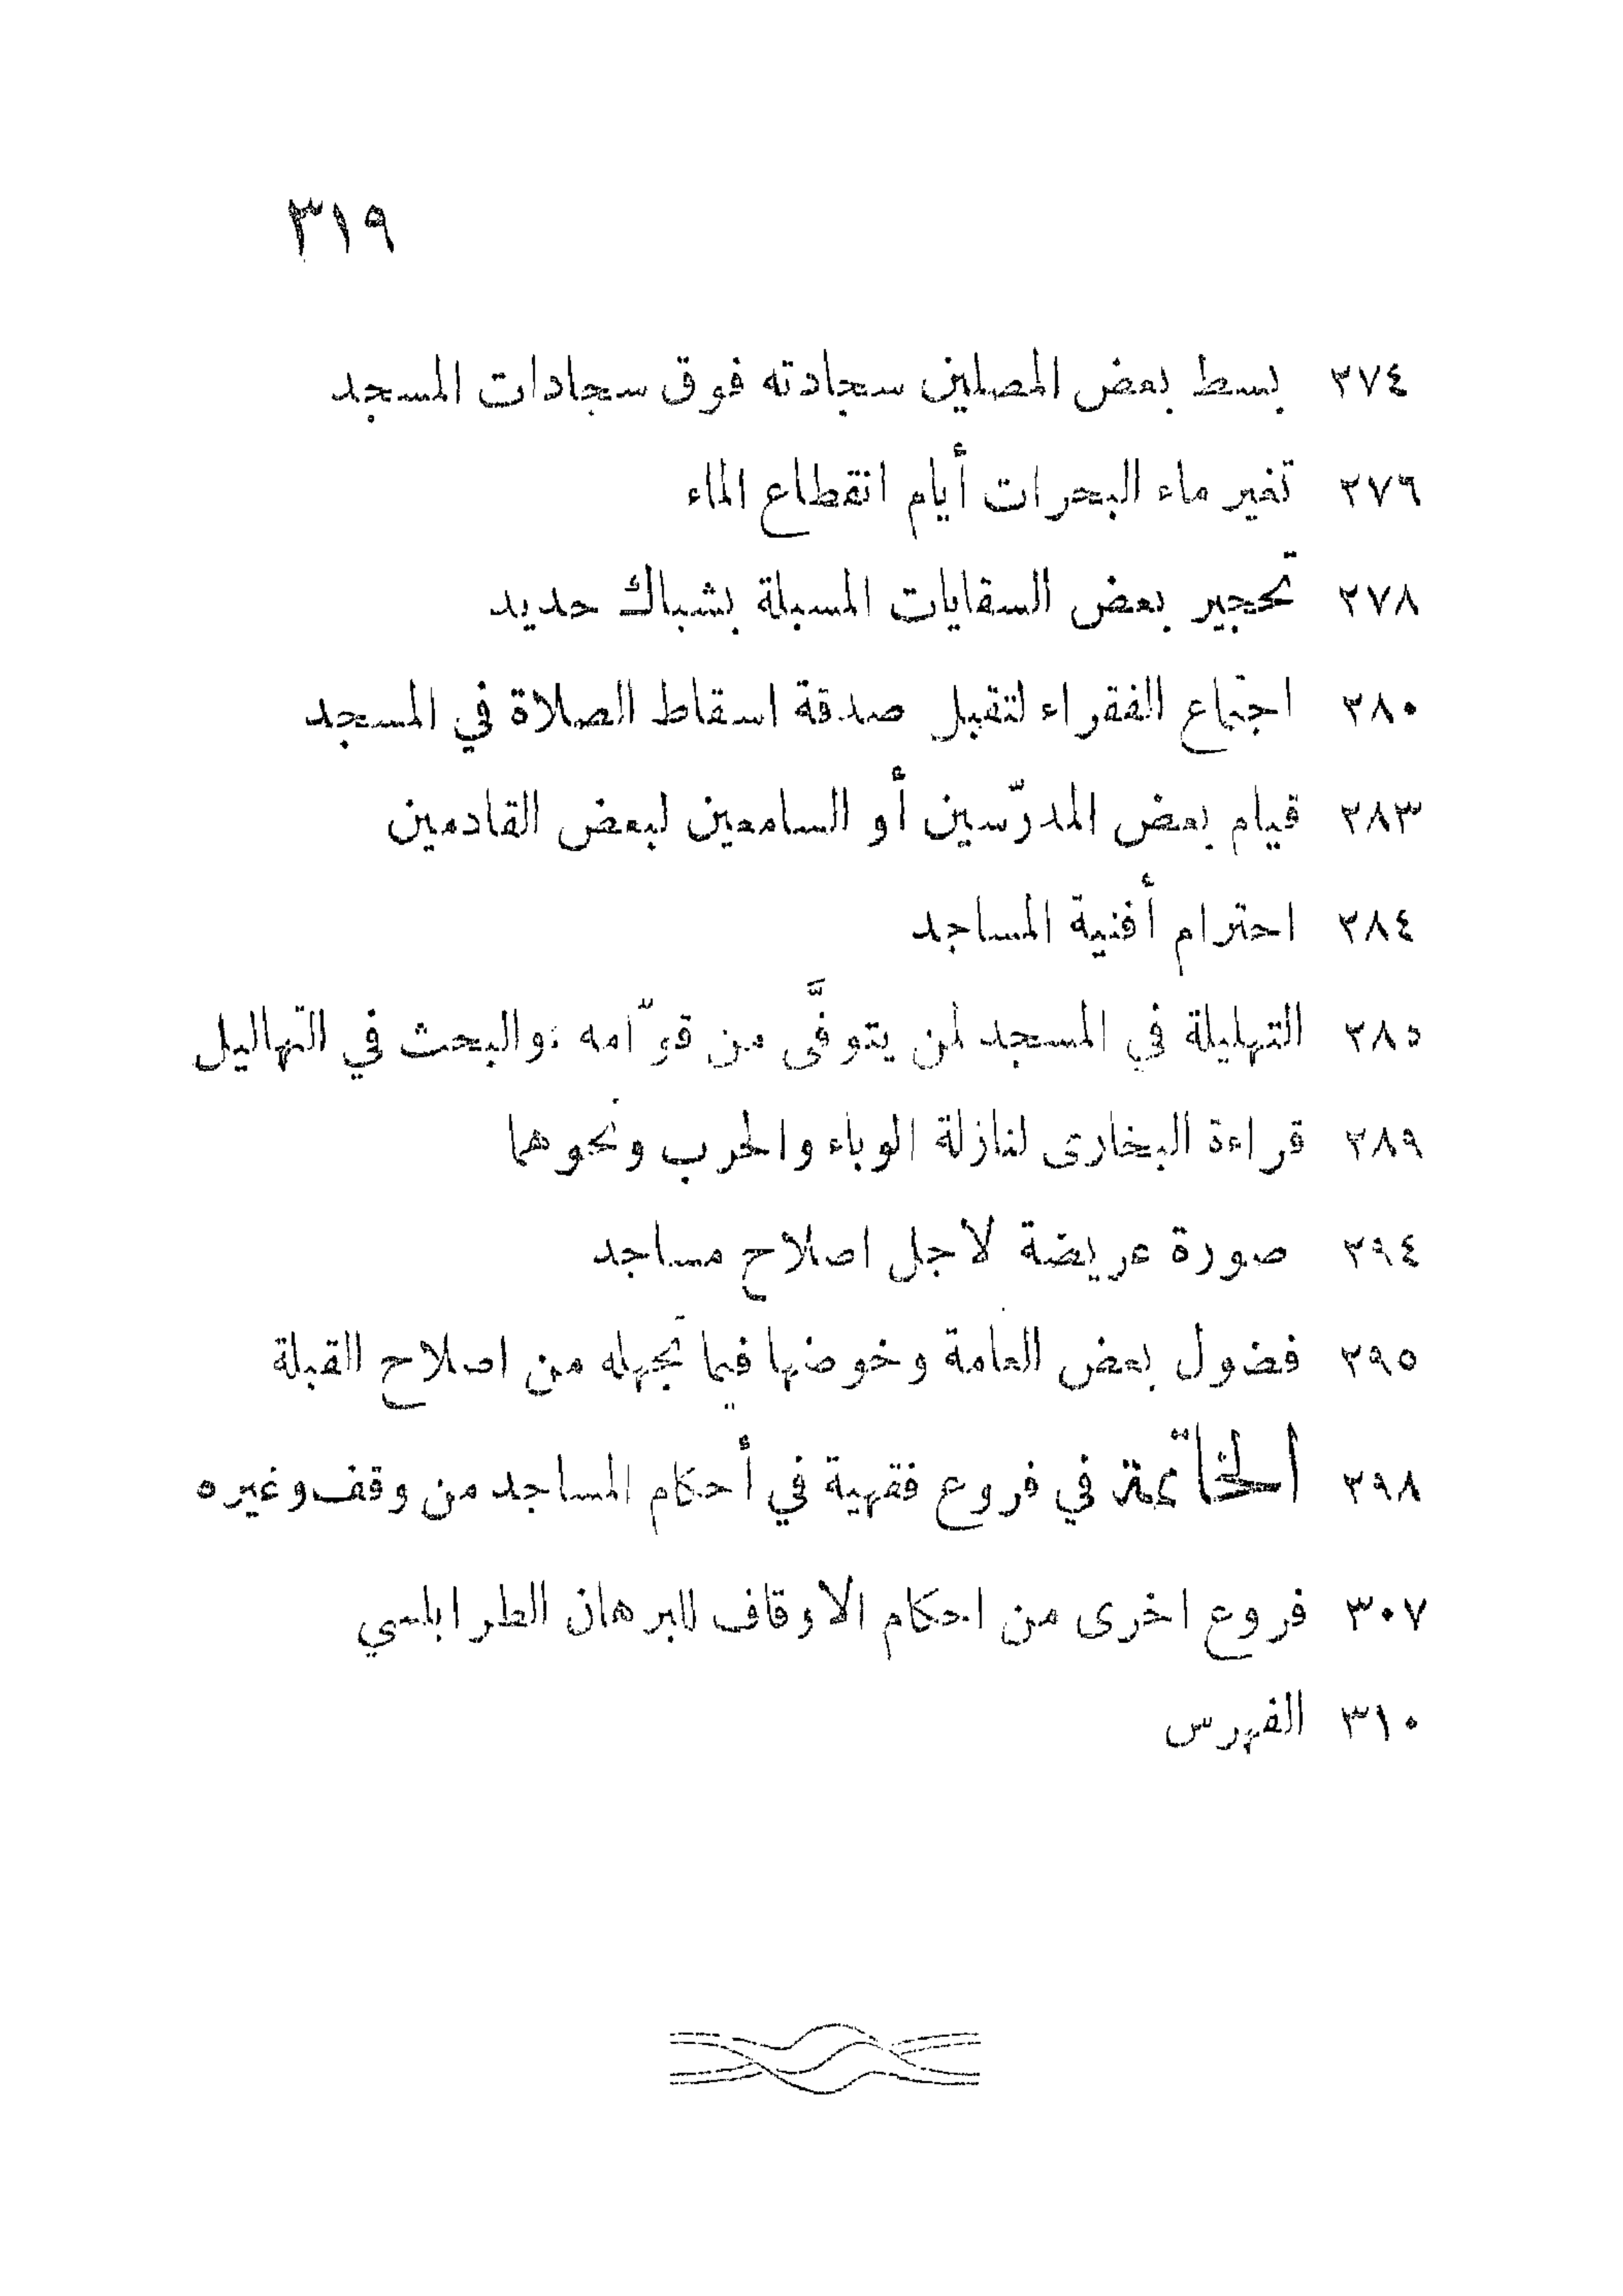 ٣١٩
٢٧٤ بسط بعض المصلين سجادته فوق سجادات المسجد
٢٧٦ تغير ماء البحرات أيام انقطاع الماء
٢٧٨ تحجير بعض السقايات المسبلة بشباك حديد
٢٨٠ اجتماع الفقراء لتقبل صدقة اسقاط الصلاة في المسجد
٢٨٣ قيام بعض المدرّسين أو السامعين لبعض القادمين
٢٨٤ احترام أفنية المساجد
٢٨٥ التهليلة في المسجد لمن يتوفَّى من قوّامه والبحث في التهاليل
٢٨٩ قراءة البخارى لنازلة الوباء والحرب ونحوهما
٢٩٤ صورة عريضة لاجل اصلاح مساجد
٢٩٥ فضول بعض العامة وخوضها فيما تجهله من اصلاح القبلة
٢٩٨ الخاتمة في فروع فقهية في أحكام المساجد من وقف وغيره
٣٠٧ فروع اخرى من احكام الاوقاف للبرهان الطرابلسي
٣١٠ الفهرس